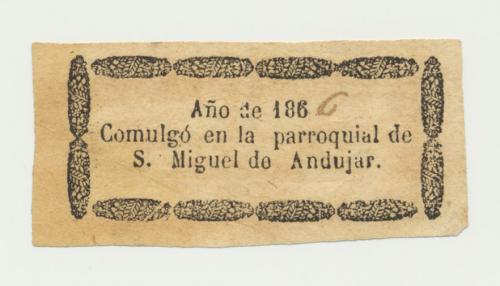 Año de 1866
Comulgó en la parroquial de
S. Miguel de Andujar.